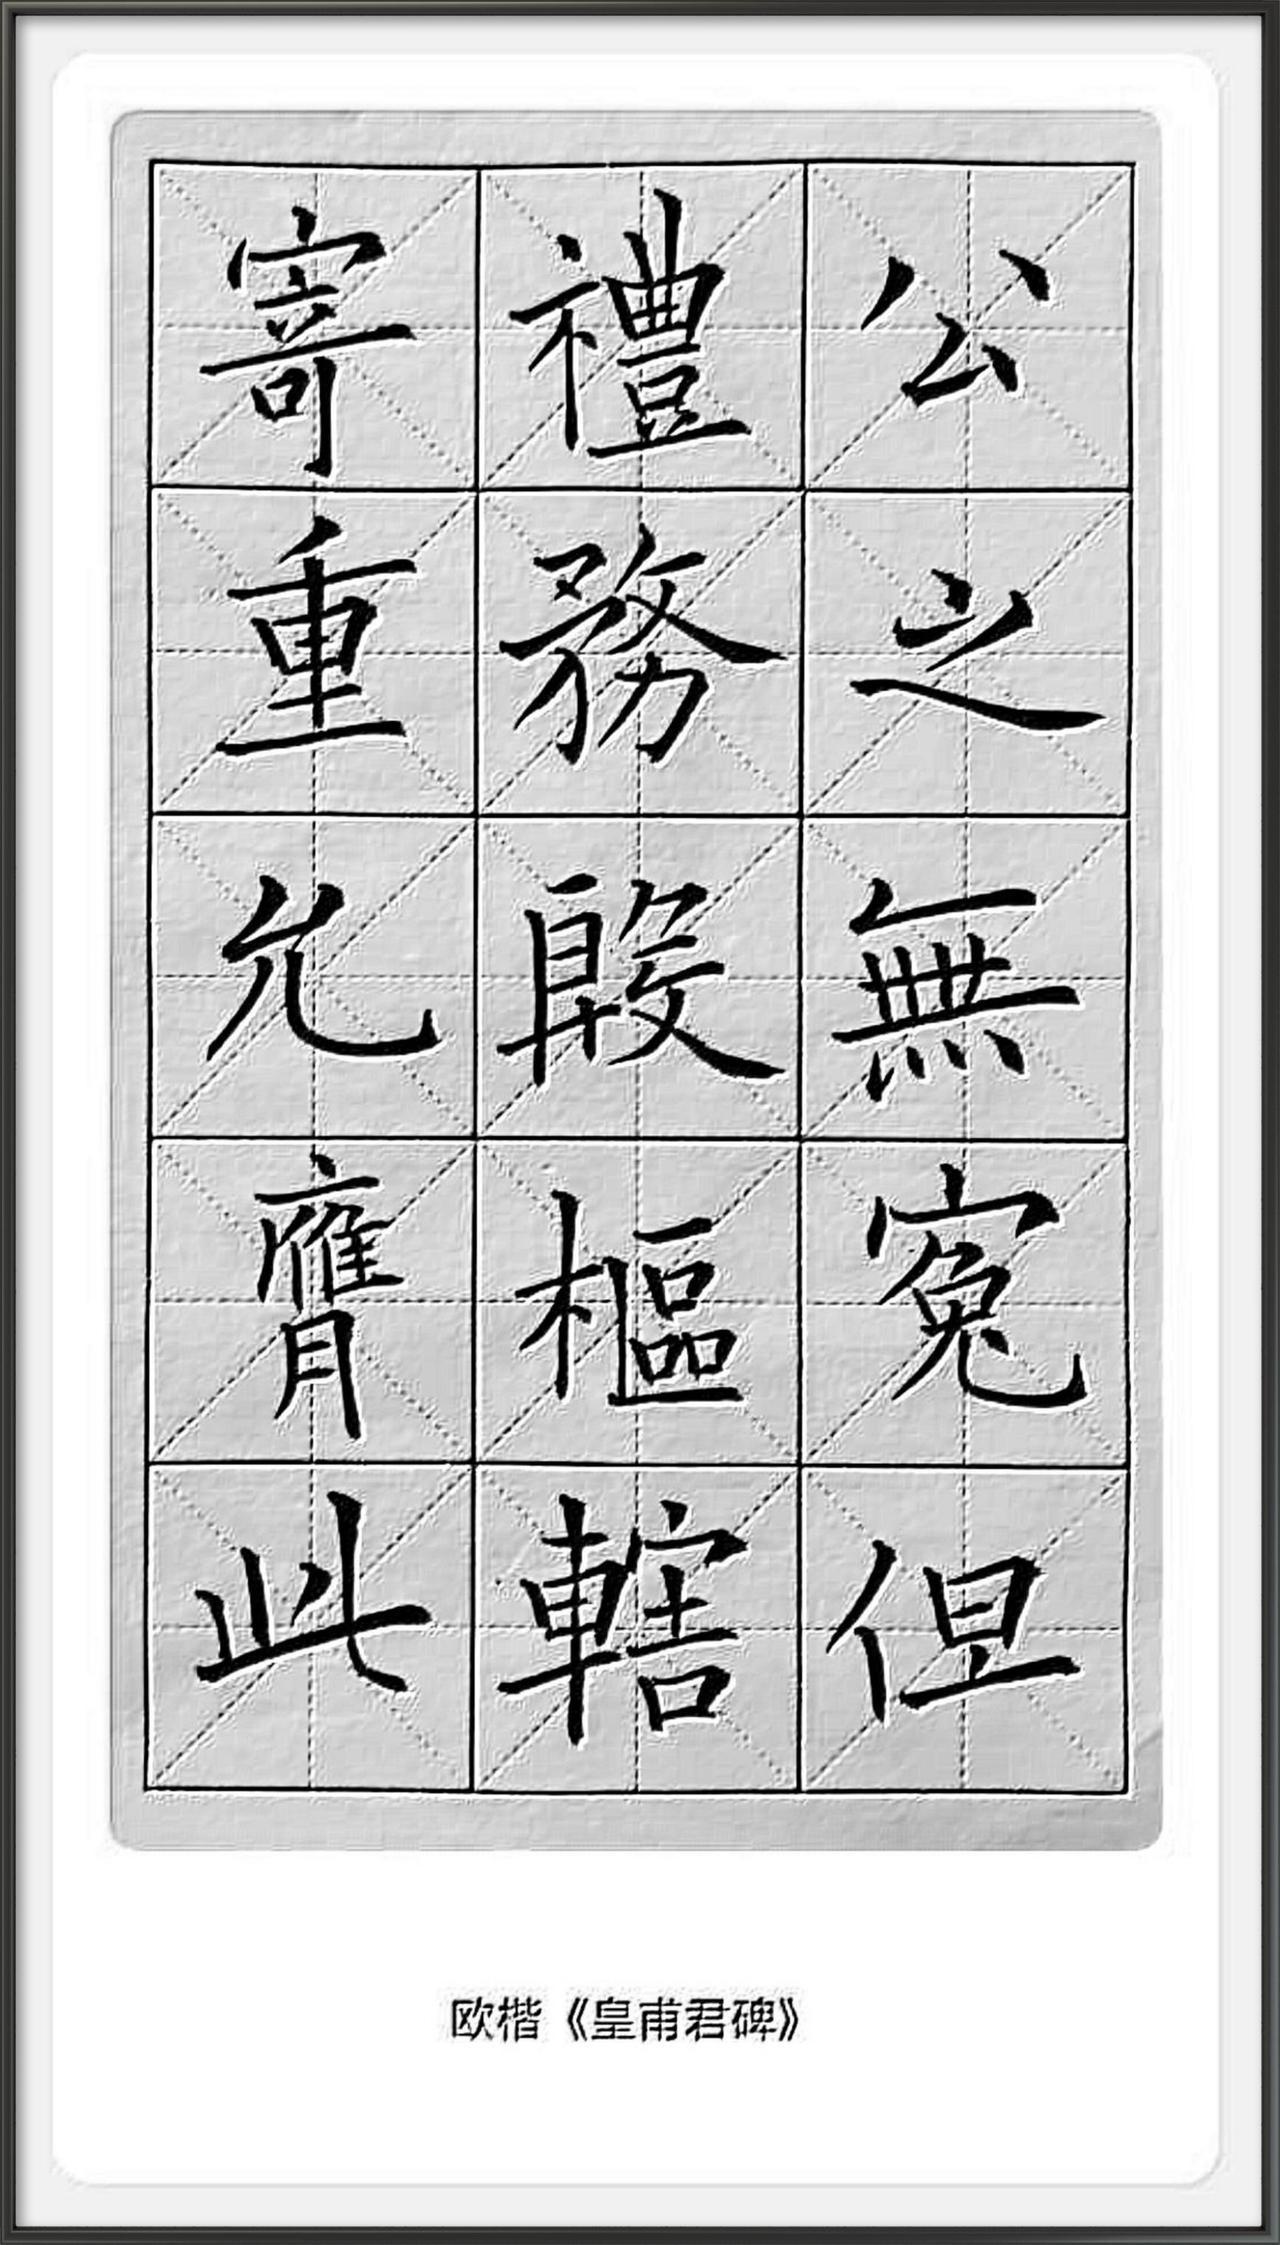 公之無寃但
禮務殷樞轄
寄重允膺此
欧楷《皇甫君碑》